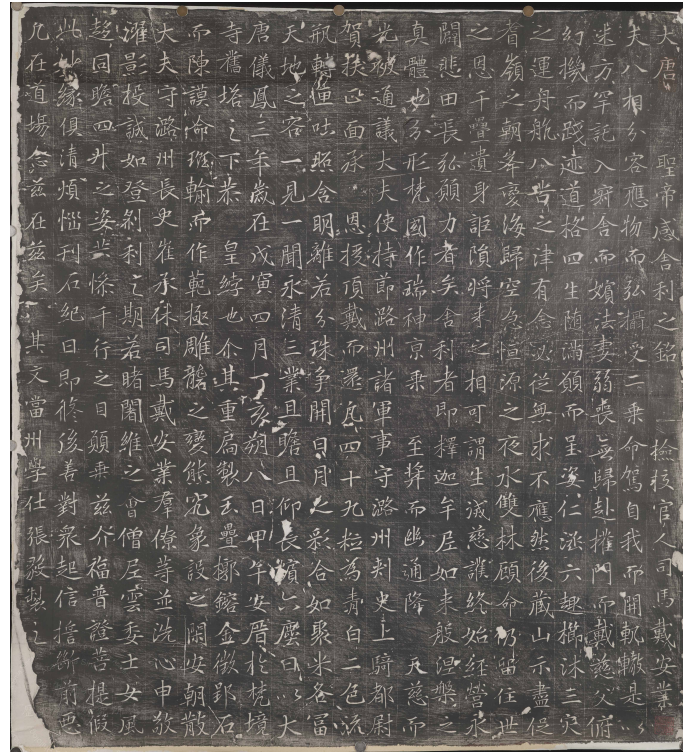 大唐 聖帝感舍利之銘 撿挍官人司馬戴安業
夫八相分容應物而弘攝受二乘命駕自我而開軌轍是以
迷方罕託入窮舍而嬪法妻弱喪無歸赴摧門而戴慈父俯
幻機而踐迹道格四生随滿願而呈姿仁涵六趣櫛沐三灾
之運舟航八苦之津有念必從無求不應然後藏山示盡促
耆嶺之朝峯變海歸空急恒源之夜水雙林顧命仍留住世
之恩千疊遺身詎隕将来之相可謂生滅慈誘終始經營永
闢悲田長弘願力者矣舍利者即釋迦牟尼如来般涅槃之
真體也分形梵國作瑞神京乗 至而幽通降 天慈而
光被通議大夫使持節潞州諸軍事守潞州刾史上騎都尉
賀拔正面承 恩授頂戴而還凡四十九粒爲青白二色流
瓶轉匣吐照含明離若分珠争開日月之彩合如聚米各冨
天地之容一見一聞永清三業且瞻且仰長擯六塵曰以大
唐儀鳳三年歲在戊寅四月丁亥朔八日甲午安厝於梵境
寺舊塔之下恭 皇綍也尒其重扃製玉疊槨鎔金徴郢石
而陳謨命班輸而作範極雕礱之變態究象設之閑安朝散
大夫守潞州長史崔承休司馬戴安業群僚等並洗心申敬
濯影投誠如登剎利之期若睹闍維之會僧尼雲委士女風
趍同瞻四升之姿共慘千行之目願乗兹介福普證菩提假
此妙緣俱清煩惱刊石紀日即脩後善對衆起信擔斷前惡
凢在道場念兹在兹矣 其文當州學仕張毅製之